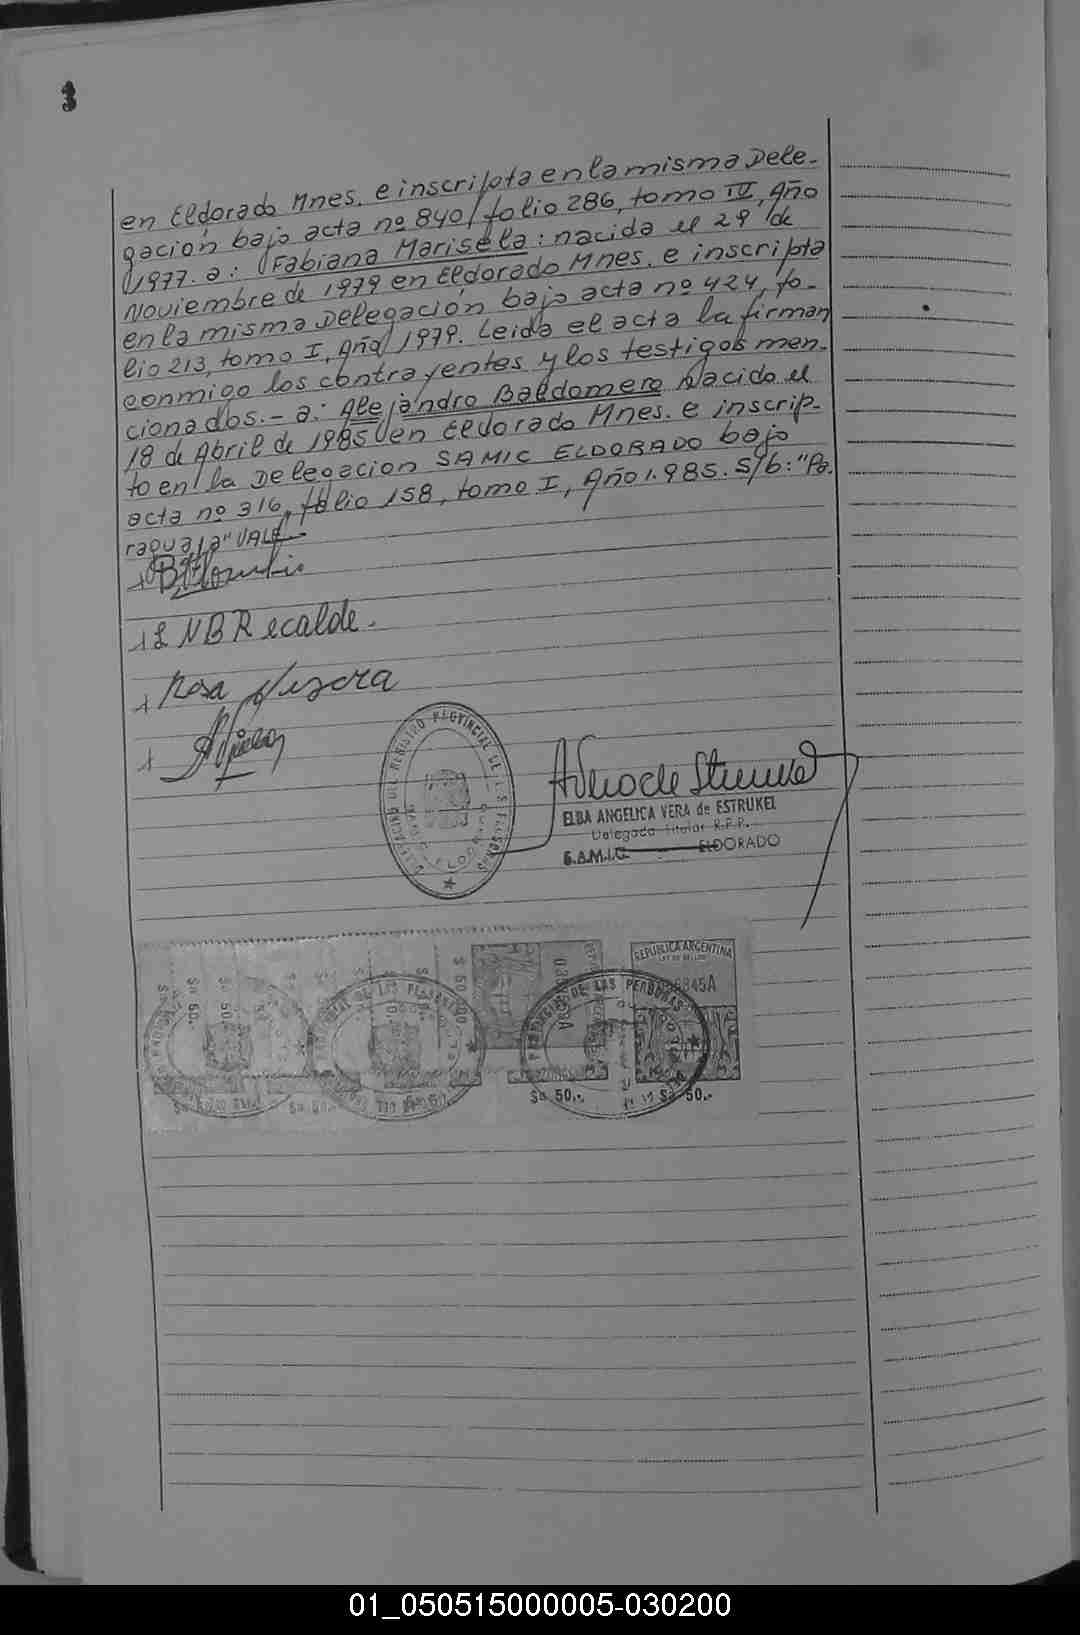 3
en Eldorado Mnes. e inscripta en la misma Dele-
gación bajo acta nº 840, folio 286, tomo IV, Año
1977. a: Fabiana Marisela: nacida el 29 de
Noviembre de 1979 en Eldorado Mnes. e inscripta
en la misma Delegación bajo acta nº 424, fo-
lio 213, tomo I, Año 1979. Leida el acta la firman
conmigo los contrayentes y los testigos men-
cionados.- a: Alejandro Baldomero Nacido el
18 de Abril de 1985 en Eldorado Mnes. e inscrip-
to en la Delegacion SAMIC ELDORADO bajo
acta nº 316, folio 158, tomo I, Año 1.985. S/b: "Pa.
raguaya" VALE
N B Recalde.
Rosa
ELBA ANGELICA VERA de ESTRUKEL
Delegada Titular R.P.P.
S.A.M.I.C. ELDORADO
REPUBLICA ARGENTINA
845A
$a 50.-
$a 50.-
01_050515000005-030200